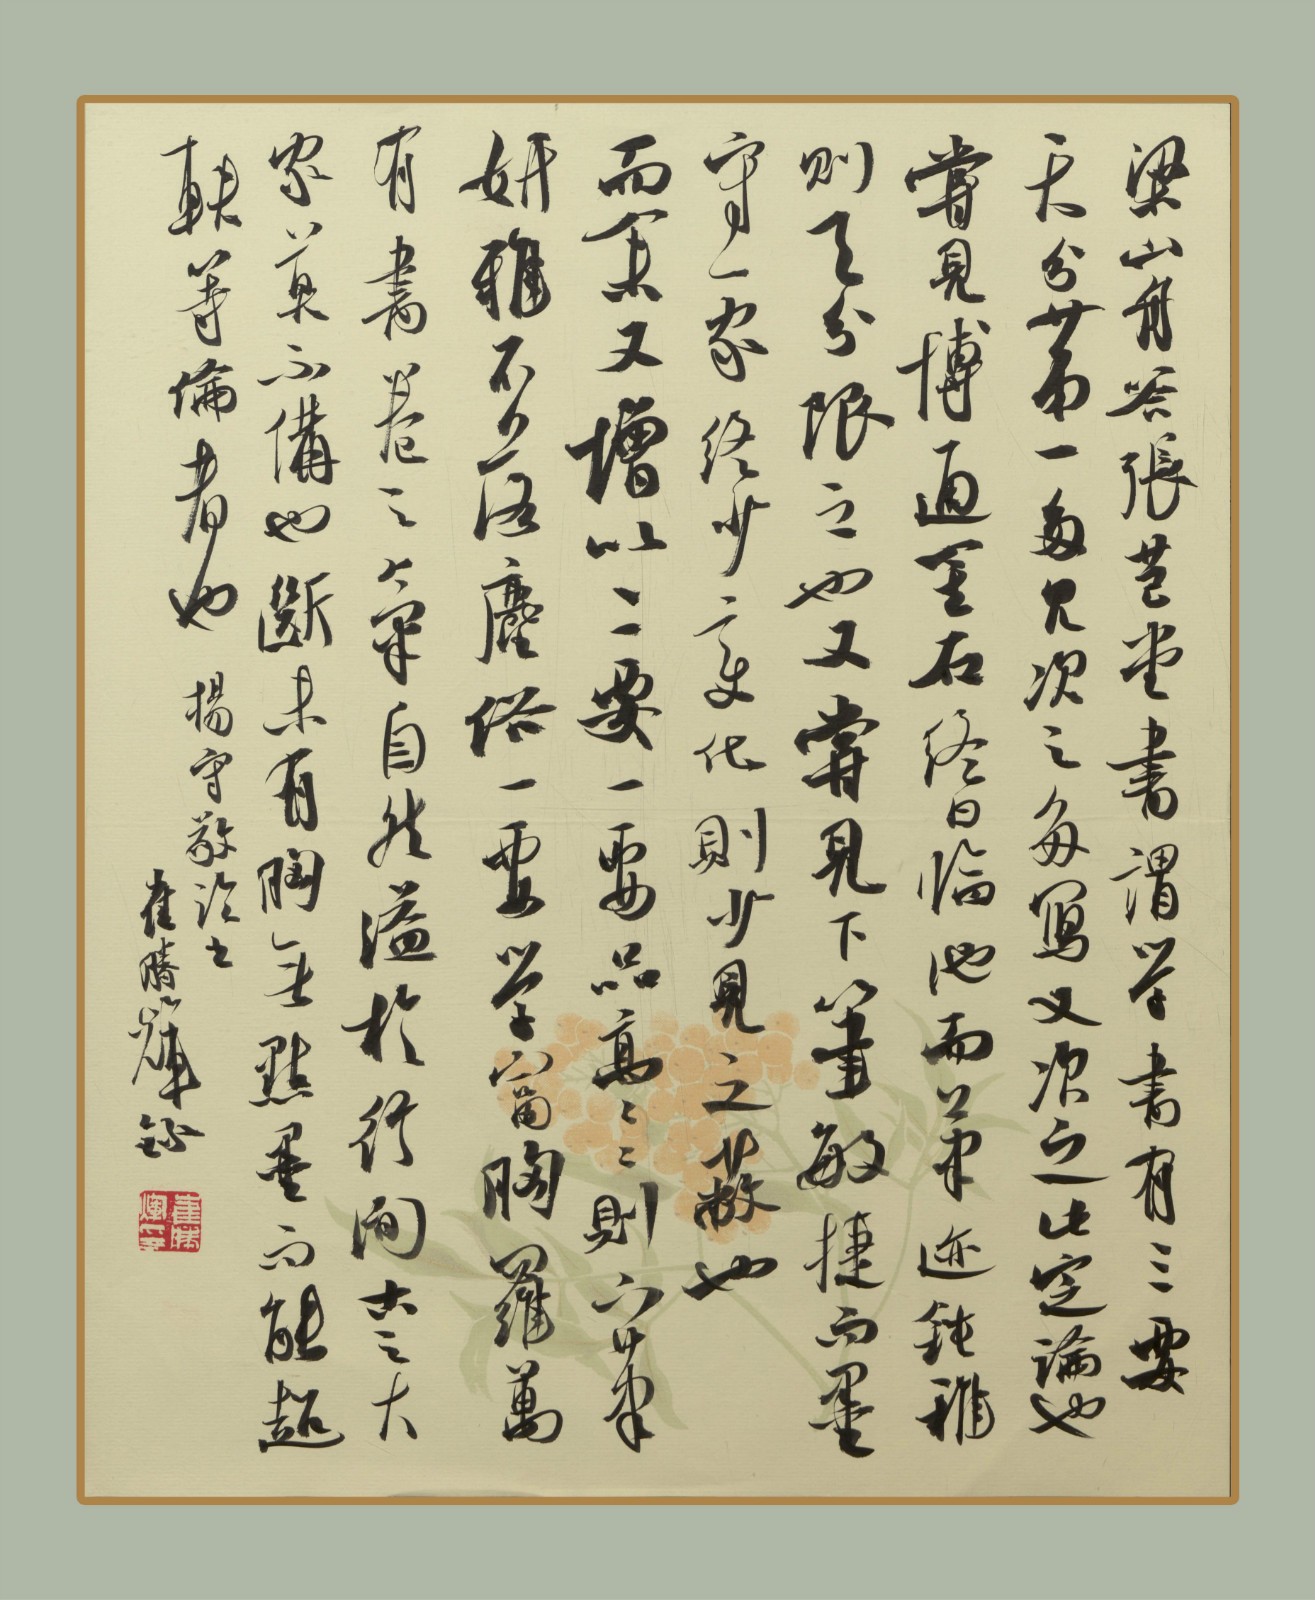 梁山舟答張芑堂書謂學書有三要
天分苐一多見次之多寫又次之此定論也
嘗見博通金石終日臨池而筆迹鈍稚
則天分限之也又嘗見下筆敏捷而墨
守一家終少變化則少見之故也
而余又增以二要一要品高〻〻則下筆
妍雅不落塵俗一要學富胸羅萬
有書卷之氣自然溢於行間古之大
家莫不備也斷未有胸無點墨而能超
軼等倫者也
楊守敬論書
崔勝輝錄